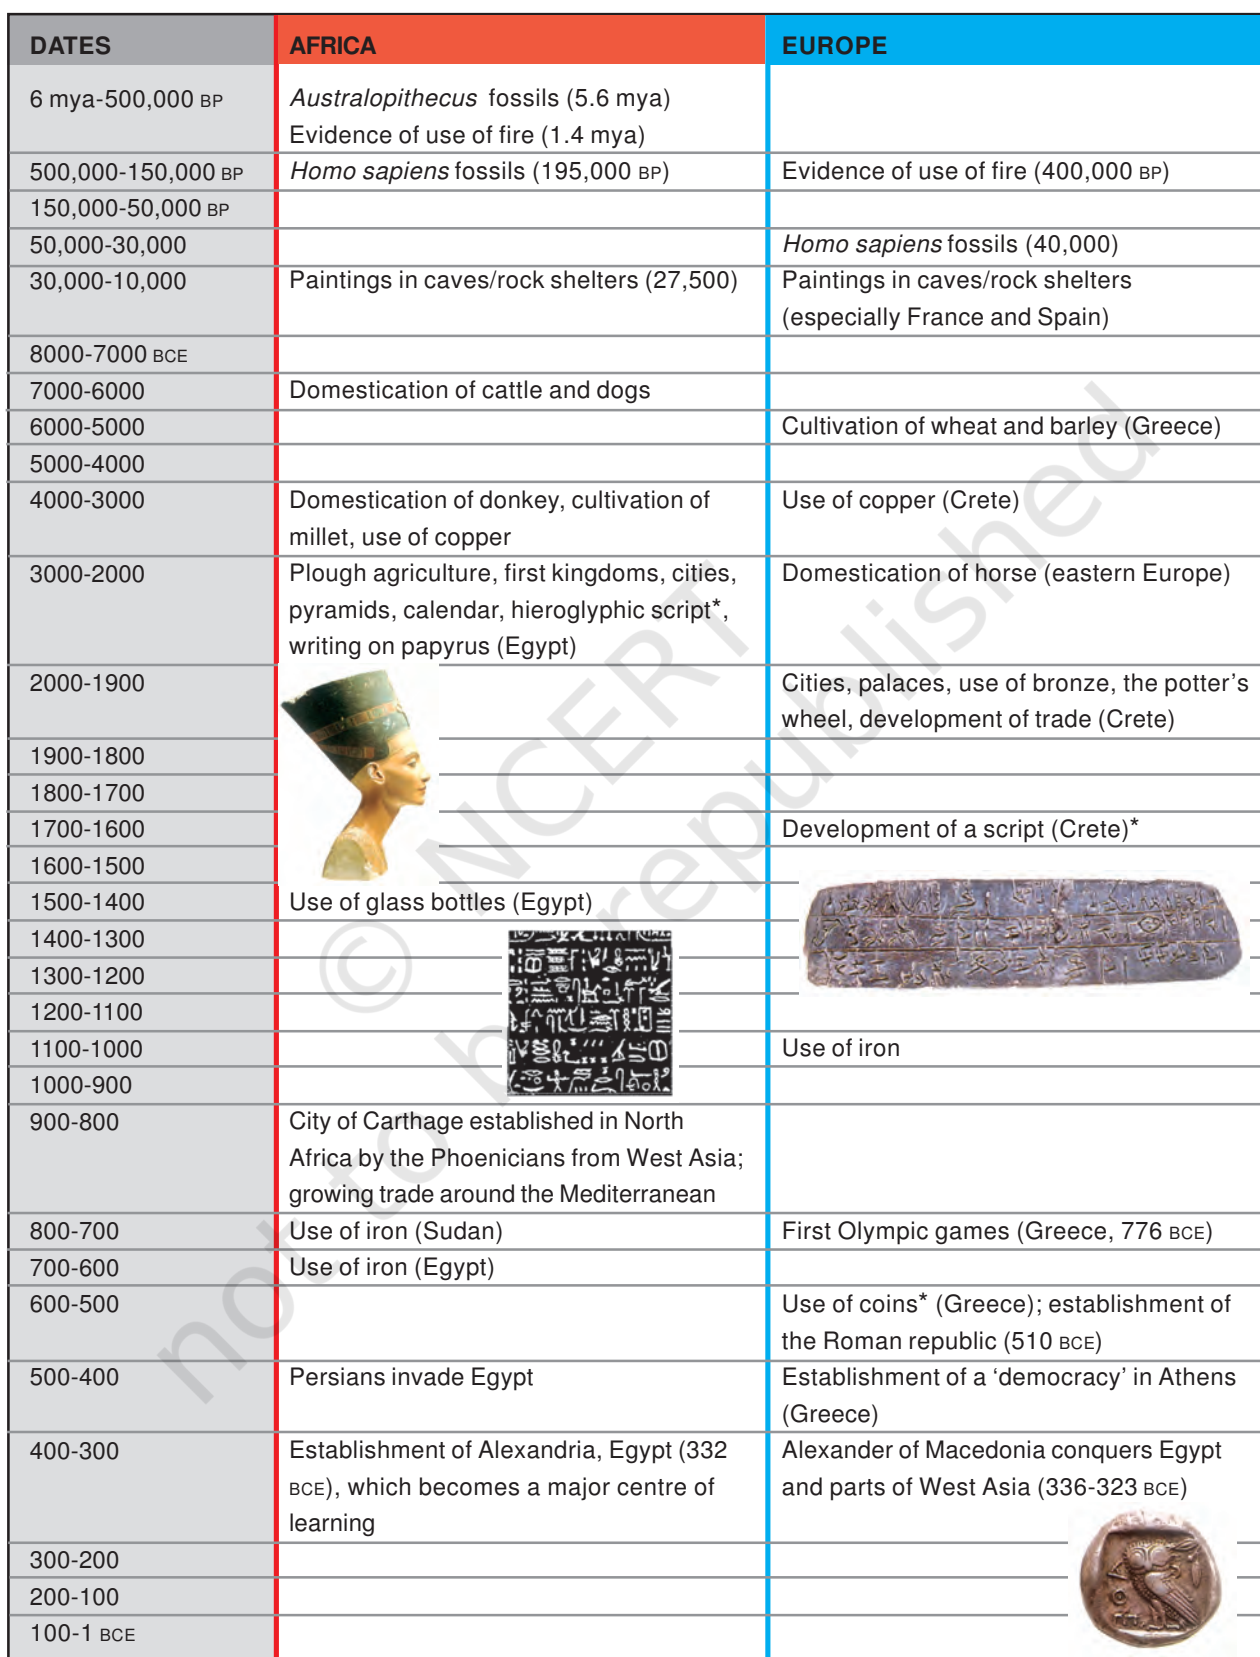 DATES AFRICA EUROPE
6 mya-500,000 BP Australopithecus fossils (5.6 mya)
Evidence of use of fire (1.4 mya)
500,000-150,000 BP Homo sapiens fossils (195,000 BP) Evidence of use of fire (400,000 BP)
150,000-50,000 BP
50,000-30,000 Homo sapiens fossils (40,000)
30,000-10,000 Paintings in caves/rock shelters (27,500) Paintings in caves/rock shelters
(especially France and Spain)
8000-7000 BCE
7000-6000 Domestication of cattle and dogs
6000-5000 Cultivation of wheat and barley (Greece)
5000-4000
4000-3000 Domestication of donkey, cultivation of Use of copper (Crete)
millet, use of copper
3000-2000 Plough agriculture, first kingdoms, cities, Domestication of horse (eastern Europe)
pyramids, calendar, hieroglyphic script*,
writing on papyrus (Egypt)
2000-1900 Cities, palaces, use of bronze, the potter's
wheel, development of trade (Crete)
1900-1800
1800-1700
1700-1600 Development of a script (Crete)*
1600-1500
1500-1400 Use of glass bottles (Egypt)
1400-1300
1300-1200
1200-1100
1100-1000 Use of iron
1000-900
900-800 City of Carthage established in North
Africa by the Phoenicians from West Asia;
growing trade around the Mediterranean
800-700 Use of iron (Sudan) First Olympic games (Greece, 776 BCE)
700-600 Use of iron (Egypt)
600-500 Use of coins* (Greece); establishment of
the Roman republic (510 BCE)
500-400 Persians invade Egypt Establishment of a ‘democracy’ in Athens
(Greece)
400-300 Establishment of Alexandria, Egypt (332 Alexander of Macedonia conquers Egypt
BCE), which becomes a major centre of and parts of West Asia (336-323 BCE)
learning
300-200
200-100
100-1 BCE
© NCERT
not to be republished